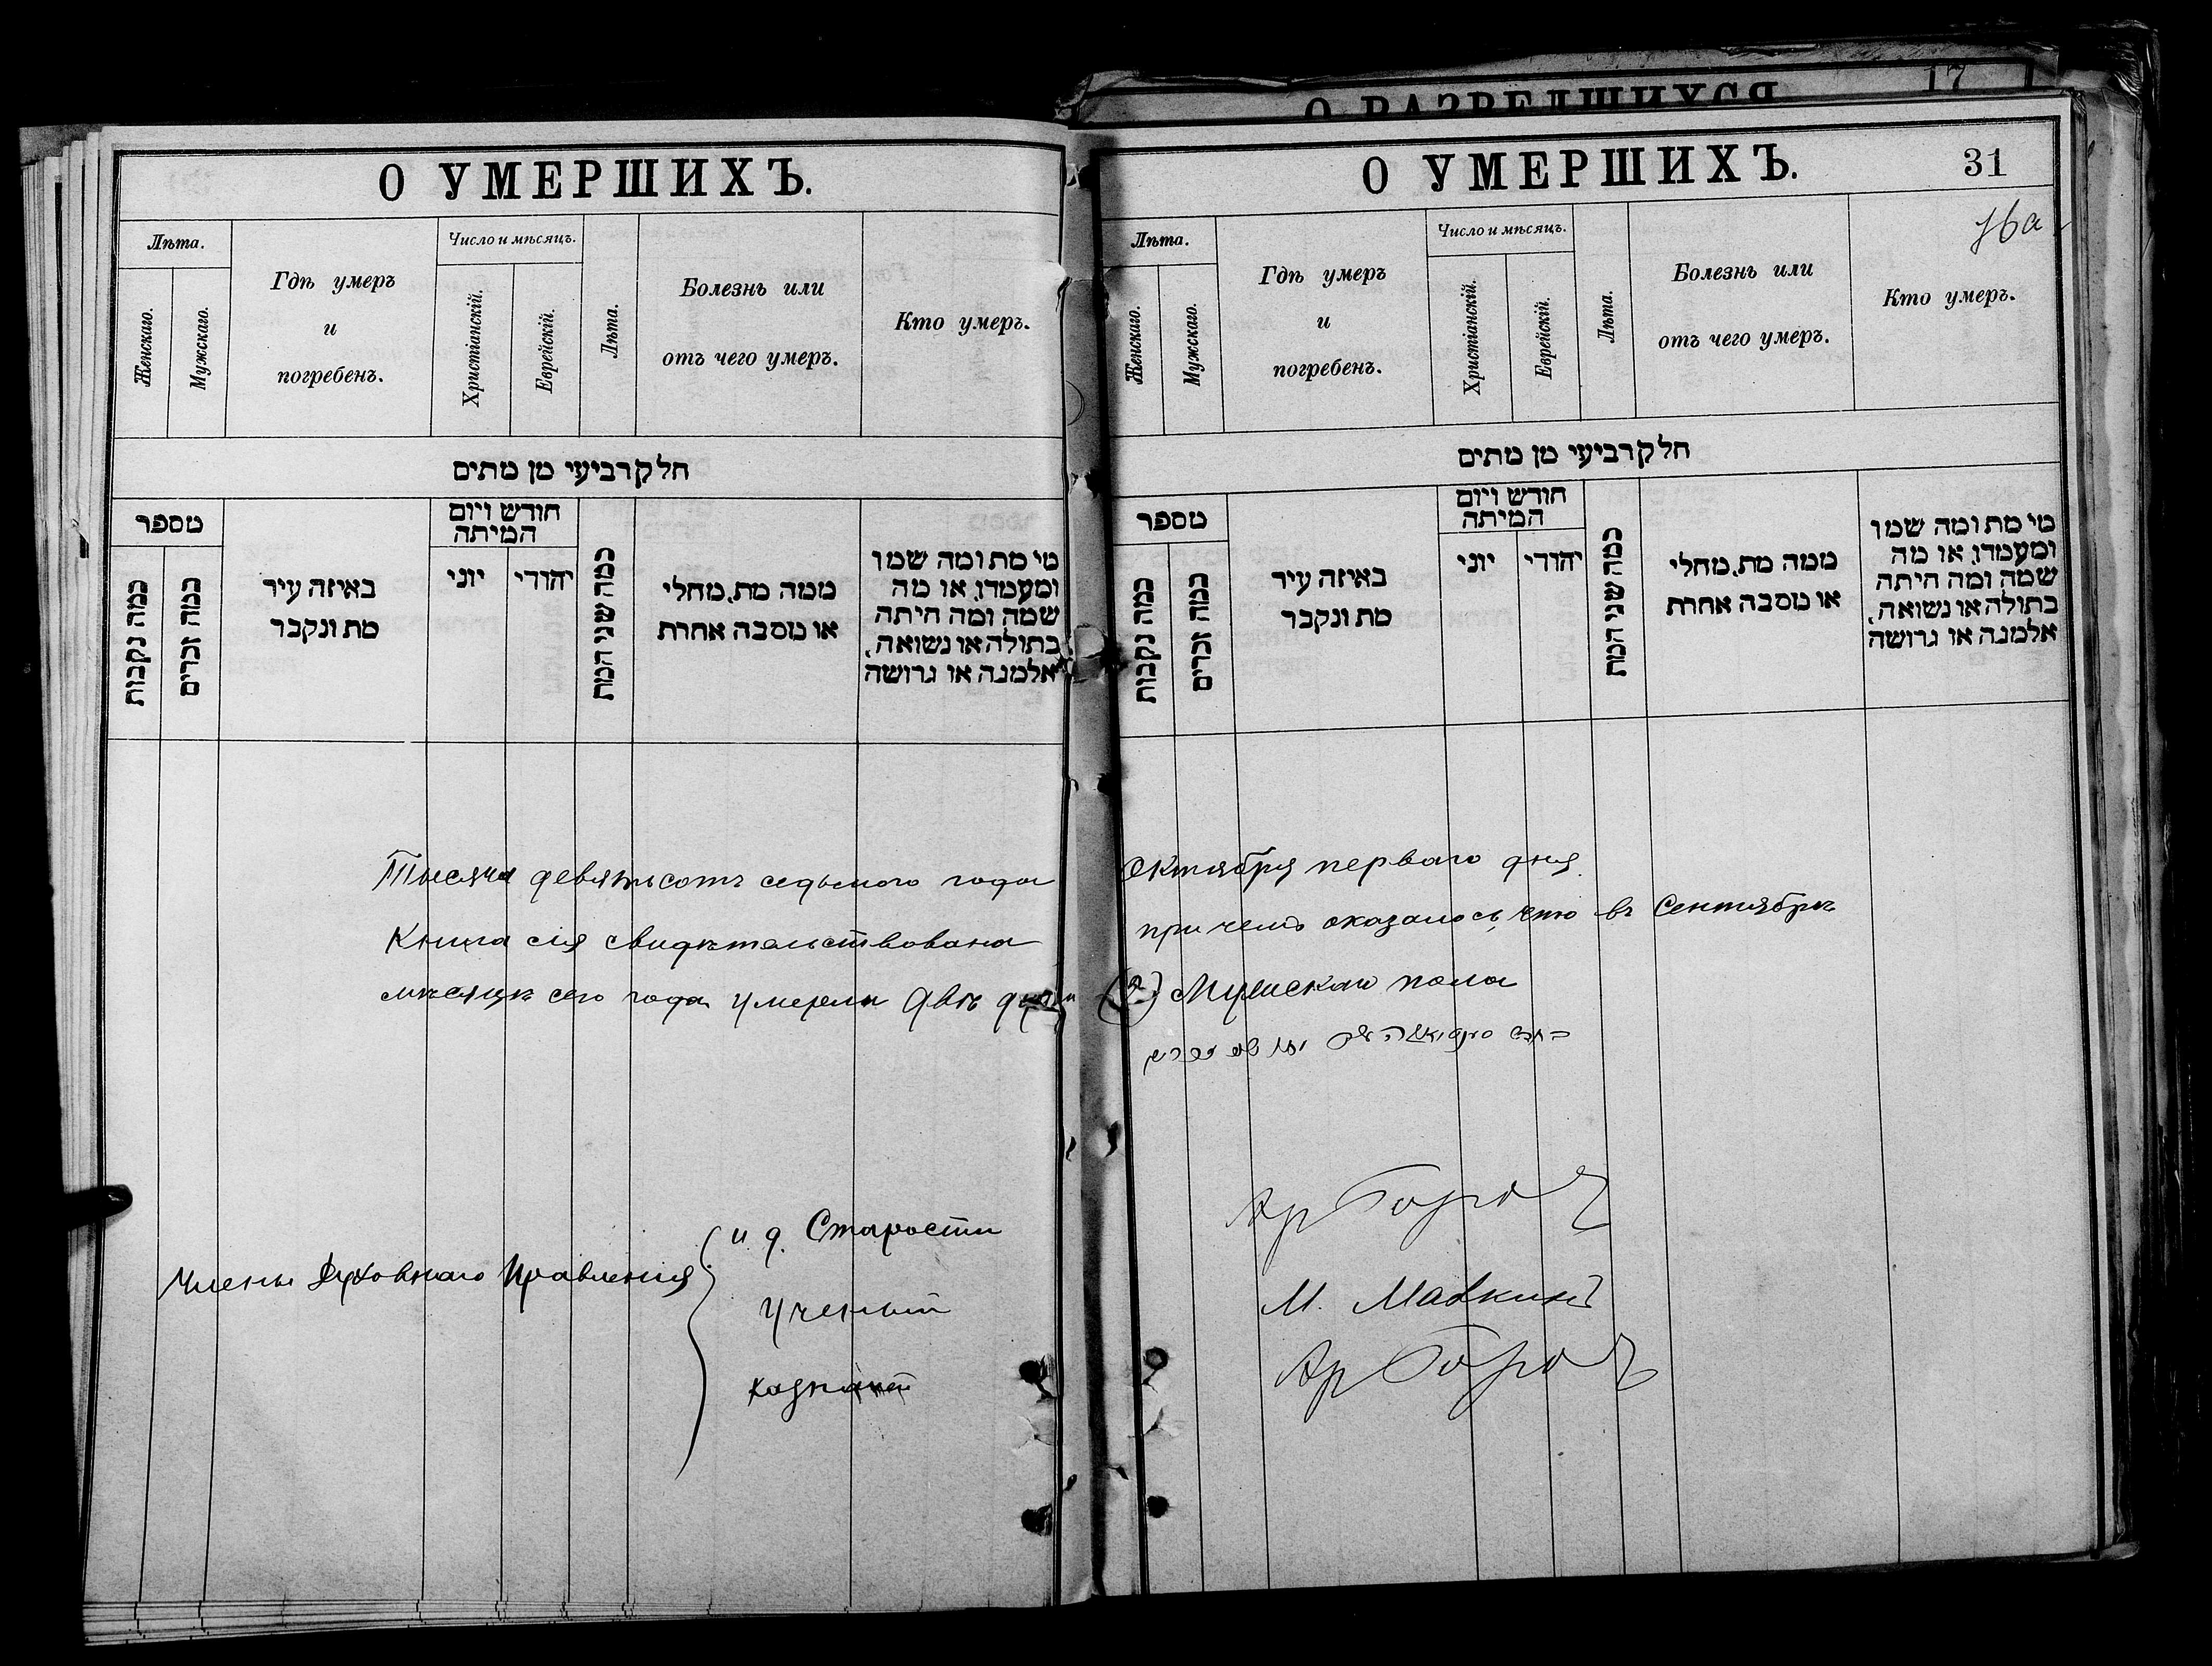 О РАЗВЕДШИХСЯ
17
О УМЕРШИХЪ.
Лѣта.
Женскаго.
Мужскаго.
Гдѣ умеръ
и
погребенъ.
Число и мѣсяцъ.
Христіанскій.
Еврейскій.
Лѣта.
Болезнь или
отъ чего умеръ.
Кто умеръ.
חלק רביעי מן מתים
מספר
כמה נקבות
כמה זכרים
באיזה עיר
מת ונקבר
חודש ויום
המיתה
יוני
יהודי
כמה שני המת
ממה מת, מחלי
או מסבה אחרת
מי מת ומה שמו
ומעמדו, או מה
שמה ומה היתה
בתולה או נשואה,
אלמנה או גרושה
О УМЕРШИХЪ.
31
16а
Лѣта.
Женскаго.
Мужскаго.
Гдѣ умеръ
и
погребенъ.
Число и мѣсяцъ.
Христіанскій.
Еврейскій.
Лѣта.
Болезнь или
отъ чего умеръ.
Кто умеръ.
חלק רביעי מן מתים
מספר
כמה נקבות
כמה זכרים
באיזה עיר
מת ונקבר
חודש ויום
המיתה
יוני
יהודי
כמה שני המת
ממה מת, מחלי
או מסבה אחרת
מי מת ומה שמו
ומעמדו, או מה
שמה ומה היתה
בתולה או נשואה,
אלמנה או גרושה
Тысяча девятьсотъ седьмого года Октября перваго дня
Книга сія свидѣтельствована причемъ оказалось, что въ Сентябрѣ
мѣсяцѣ сего года умерли двѣ души (2) Мужскаго пола
Члены Духовнаго Правленія
и. д. Старосты
Ученый
казначей
М. Мавкинъ